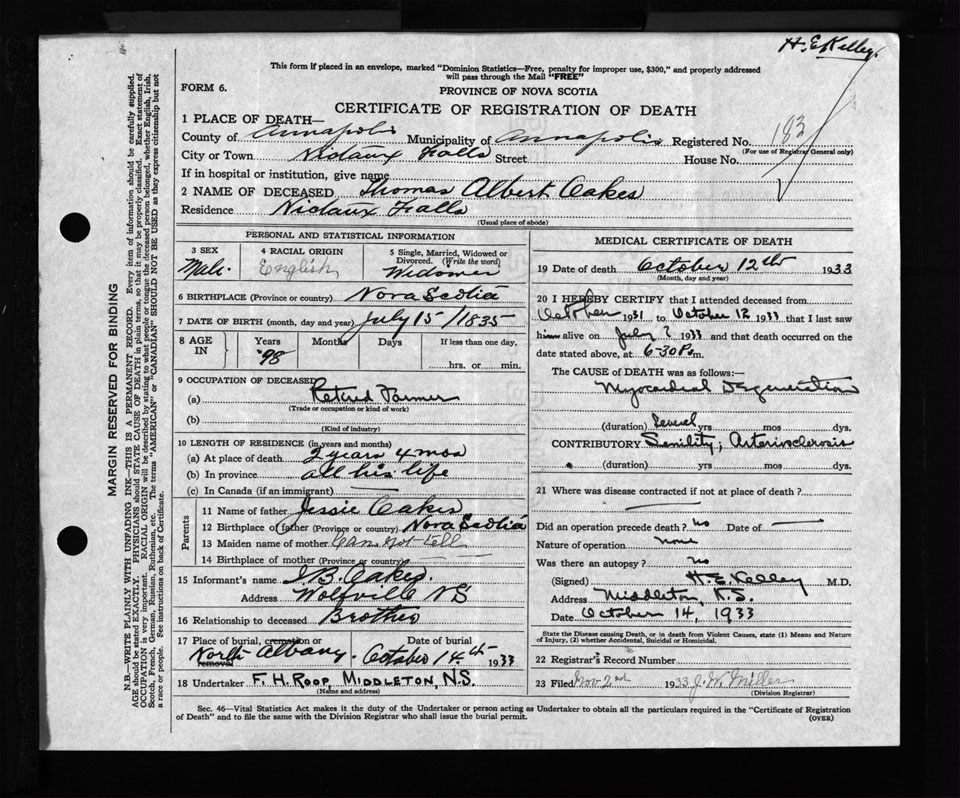 H. E. Kelley.
This form if placed in an envelope, marked "Dominion Statistics—Free, penalty for improper use, $300," and properly addressed
will pass through the Mail "FREE"
FORM 6.
PROVINCE OF NOVA SCOTIA
CERTIFICATE OF REGISTRATION OF DEATH
1 PLACE OF DEATH—
County of Annapolis Municipality of Annapolis Registered No. 183
(For use of Registrar General only)
City or Town Nictaux Falls Street House No.
If in hospital or institution, give name
2 NAME OF DECEASED Thomas Albert Oakes
Residence Nictaux Falls
(Usual place of abode)
PERSONAL AND STATISTICAL INFORMATION
3 SEX Male.
4 RACIAL ORIGIN English
5 Single, Married, Widowed or Divorced. (Write the word) Widower
6 BIRTHPLACE (Province or country) Nova Scotia
7 DATE OF BIRTH (month, day and year) July 15/1835
8 AGE IN Years 98 Months Days If less than one day, hrs. or min.
9 OCCUPATION OF DECEASED
(a) Retired Farmer
(Trade or occupation or kind of work)
(b)
(Kind of industry)
10 LENGTH OF RESIDENCE (in years and months)
(a) At place of death 2 years 4 mos
(b) In province all his life
(c) In Canada (if an immigrant)
Parents
11 Name of father Jessie Oakes
12 Birthplace of father (Province or country) Nova Scotia
13 Maiden name of mother Can not tell
14 Birthplace of mother (Province or country)
15 Informant's name I. B. Oakes.
Address Wolfville NS
16 Relationship to deceased Brother
17 Place of burial, cremation or removal North Albany. Date of burial October 14th 1933
18 Undertaker F. H. ROOP, MIDDLETON, N.S.
(Name and address)
MEDICAL CERTIFICATE OF DEATH
19 Date of death October 12th 1933
(Month, day and year)
20 I HEREBY CERTIFY that I attended deceased from
October 1931 to October 12 1933 that I last saw
him alive on July ? 1933 and that death occurred on the
date stated above, at 6-30 P m.
The CAUSE OF DEATH was as follows:
Myocardial Degeneration
(duration) Several yrs mos dys.
CONTRIBUTORY Senility; Arteriosclerosis
(duration) yrs mos dys.
21 Where was disease contracted if not at place of death?
Did an operation precede death? No Date of
Nature of operation None
Was there an autopsy? No
(Signed) H. E. Kelley M.D.
Address Middleton, N.S.
Date October 14, 1933
State the Disease causing Death, or in death from Violent Causes, state (1) Means and Nature
of Injury, (2) whether Accidental, Suicidal or Homicidal.
22 Registrar's Record Number
23 Filed Nov 2nd 1933 J. W. Miller
(Division Registrar)
Sec. 46—Vital Statistics Act makes it the duty of the Undertaker or person acting as Undertaker to obtain all the particulars required in the "Certificate of Registration
of Death" and to file the same with the Division Registrar who shall issue the burial permit.
(OVER)
MARGIN RESERVED FOR BINDING
N.B.—WRITE PLAINLY WITH UNFADING INK—THIS IS A PERMANENT RECORD. Every item of information should be carefully supplied.
AGE should be stated EXACTLY. PHYSICIANS should STATE CAUSE OF DEATH in plain terms, so that it may be properly classified. Exact statement of
OCCUPATION is very important. RACIAL ORIGIN will be described by stating to what people or tongue the deceased person belonged, whether English, Irish,
Scotch, French, German, Russian, Ruthenian, etc. The terms "AMERICAN" or "CANADIAN" SHOULD NOT BE USED as they express citizenship but not
a race or people. See instructions on back of Certificate.